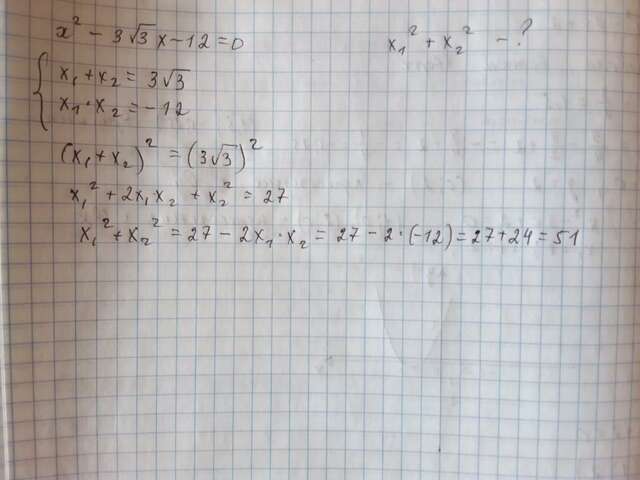 x² - 3√3 x - 12 = 0
x₁² + x₂² - ?
x₁ + x₂ = 3√3
x₁ · x₂ = -12
(x₁ + x₂)² = (3√3)²
x₁² + 2x₁x₂ + x₂² = 27
x₁² + x₂² = 27 - 2x₁ · x₂ = 27 - 2 · (-12) = 27 + 24 = 51